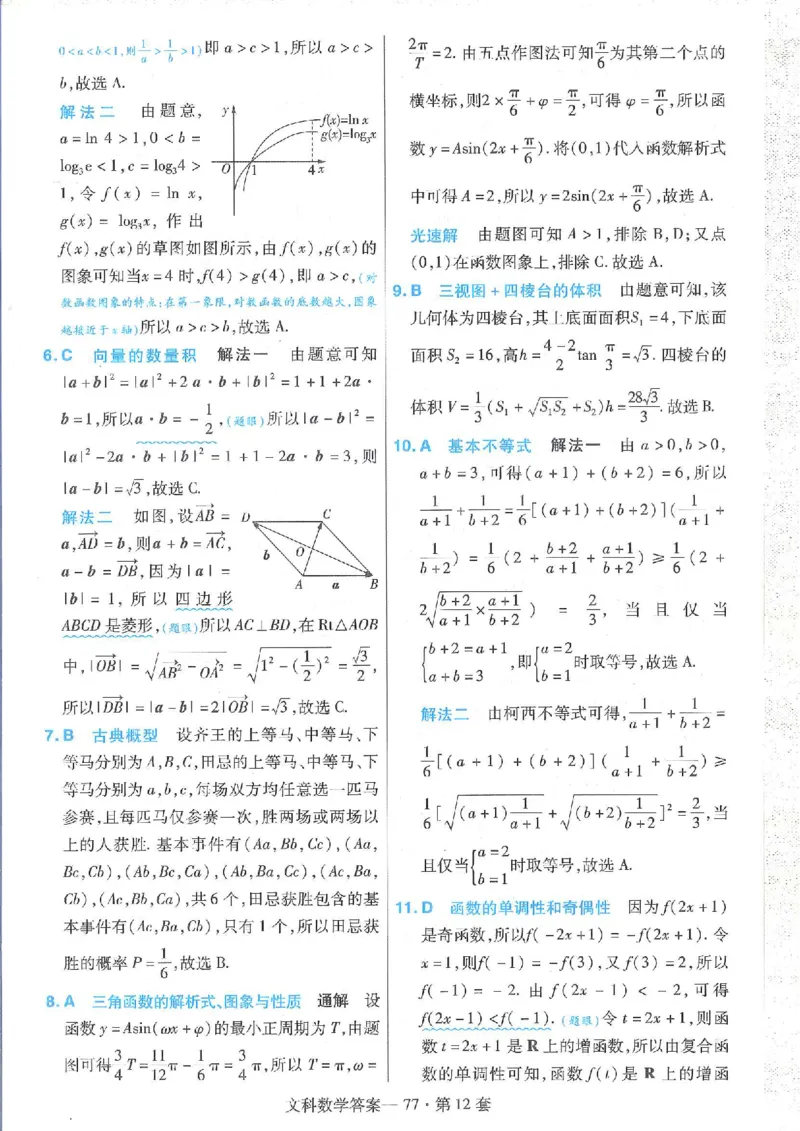 0<a<b<1,则1/a>1/b>1)即 a>c>1,所以 a>c>
b,故选 A.
解法二 由题意,
a=ln 4>1,0<b=
log₃e<1,c=log₃4>
1,令 f(x)=ln x,
g(x)=log₃x,作出
y
f(x)=ln x
g(x)=log₃x
O 1 4 x
f(x),g(x)的草图如图所示,由 f(x),g(x)的
图象可知当x=4 时,f(4)>g(4),即 a>c,(对
数函数图象的特点:在第一象限,对数函数的底数越大,图象
越接近于 x 轴)所以 a>c>b,故选 A.
6.C 向量的数量积 解法一 由题意可知
|a+b|²=|a|²+2a·b+|b|²=1+1+2a·
b=1,所以a·b=-1/2,(题眼)所以|a-b|²=
|a|²-2a·b+|b|²=1+1-2a·b=3,则
|a-b|=√3,故选 C.
解法二 如图,设AB→=
a,AD→=b,则a+b=AC→,
a-b=DB→,因为|a|=
|b|=1,所以四边形
D C
b O
A a B
ABCD 是菱形,(题眼)所以 AC⊥BD,在 Rt△AOB
中,|OB→|=√(AB→²-OA→²)=√(1²-(1/2)²)=√3/2,
所以|DB→|=|a-b|=2|OB→|=√3,故选 C.
7.B 古典概型 设齐王的上等马、中等马、下
等马分别为 A,B,C,田忌的上等马、中等马、下
等马分别为 a,b,c,每场双方均任意选一匹马
参赛,且每匹马仅参赛一次,胜两场或两场以
上的人获胜. 基本事件有(Aa,Bb,Cc),(Aa,
Bc,Cb),(Ab,Bc,Ca),(Ab,Ba,Cc),(Ac,Ba,
Cb),(Ac,Bb,Ca),共 6 个,田忌获胜包含的基
本事件有(Ac,Ba,Cb),只有 1 个,所以田忌获
胜的概率 P=1/6,故选 B.
8.A 三角函数的解析式、图象与性质 通解 设
函数 y=Asin(ωx+φ)的最小正周期为 T,由题
图可得3/4T=11/12π-1/6π=3/4π,所以 T=π,ω=
2π/T=2. 由五点作图法可知π/6为其第二个点的
横坐标,则2×π/6+φ=π/2,可得 φ=π/6,所以函
数 y=Asin(2x+π/6). 将(0,1)代入函数解析式
中可得 A=2,所以 y=2sin(2x+π/6),故选 A.
光速解 由题图可知 A>1,排除 B,D;又点
(0,1)在函数图象上,排除 C. 故选 A.
9.B 三视图+四棱台的体积 由题意可知,该
几何体为四棱台,其上底面面积S₁=4,下底面
面积 S₂=16,高h=(4-2)/2 tan π/3=√3. 四棱台的
体积 V=1/3(S₁+√(S₁S₂)+S₂)h=28√3/3. 故选 B.
10.A 基本不等式 解法一 由 a>0,b>0,
a+b=3,可得(a+1)+(b+2)=6,所以
1/(a+1)+1/(b+2)=1/6[(a+1)+(b+2)](1/(a+1)+
1/(b+2))=1/6(2+(b+2)/(a+1)+(a+1)/(b+2))≥1/6(2+
2√((b+2)/(a+1)×(a+1)/(b+2)))=2/3,当且仅当
{b+2=a+1 a+b=3,即{a=2 b=1时取等号,故选 A.
解法二 由柯西不等式可得,1/(a+1)+1/(b+2)=
1/6[(a+1)+(b+2)](1/(a+1)+1/(b+2))≥
1/6[√((a+1)1/(a+1))+√((b+2)1/(b+2))]²=2/3,当
且仅当{a=2 b=1时取等号,故选 A.
11.D 函数的单调性和奇偶性 因为 f(2x+1)
是奇函数,所以f(-2x+1)=-f(2x+1). 令
x=1,则f(-1)=-f(3),又 f(3)=2,所以
f(-1)=-2. 由 f(2x-1)<-2,可得
f(2x-1)<f(-1).(题眼)令 t=2x+1,则函
数 t=2x+1 是 R 上的增函数,所以由复合函
数的单调性可知,函数 f(t)是 R 上的增函
文科数学答案—77·第 12 套